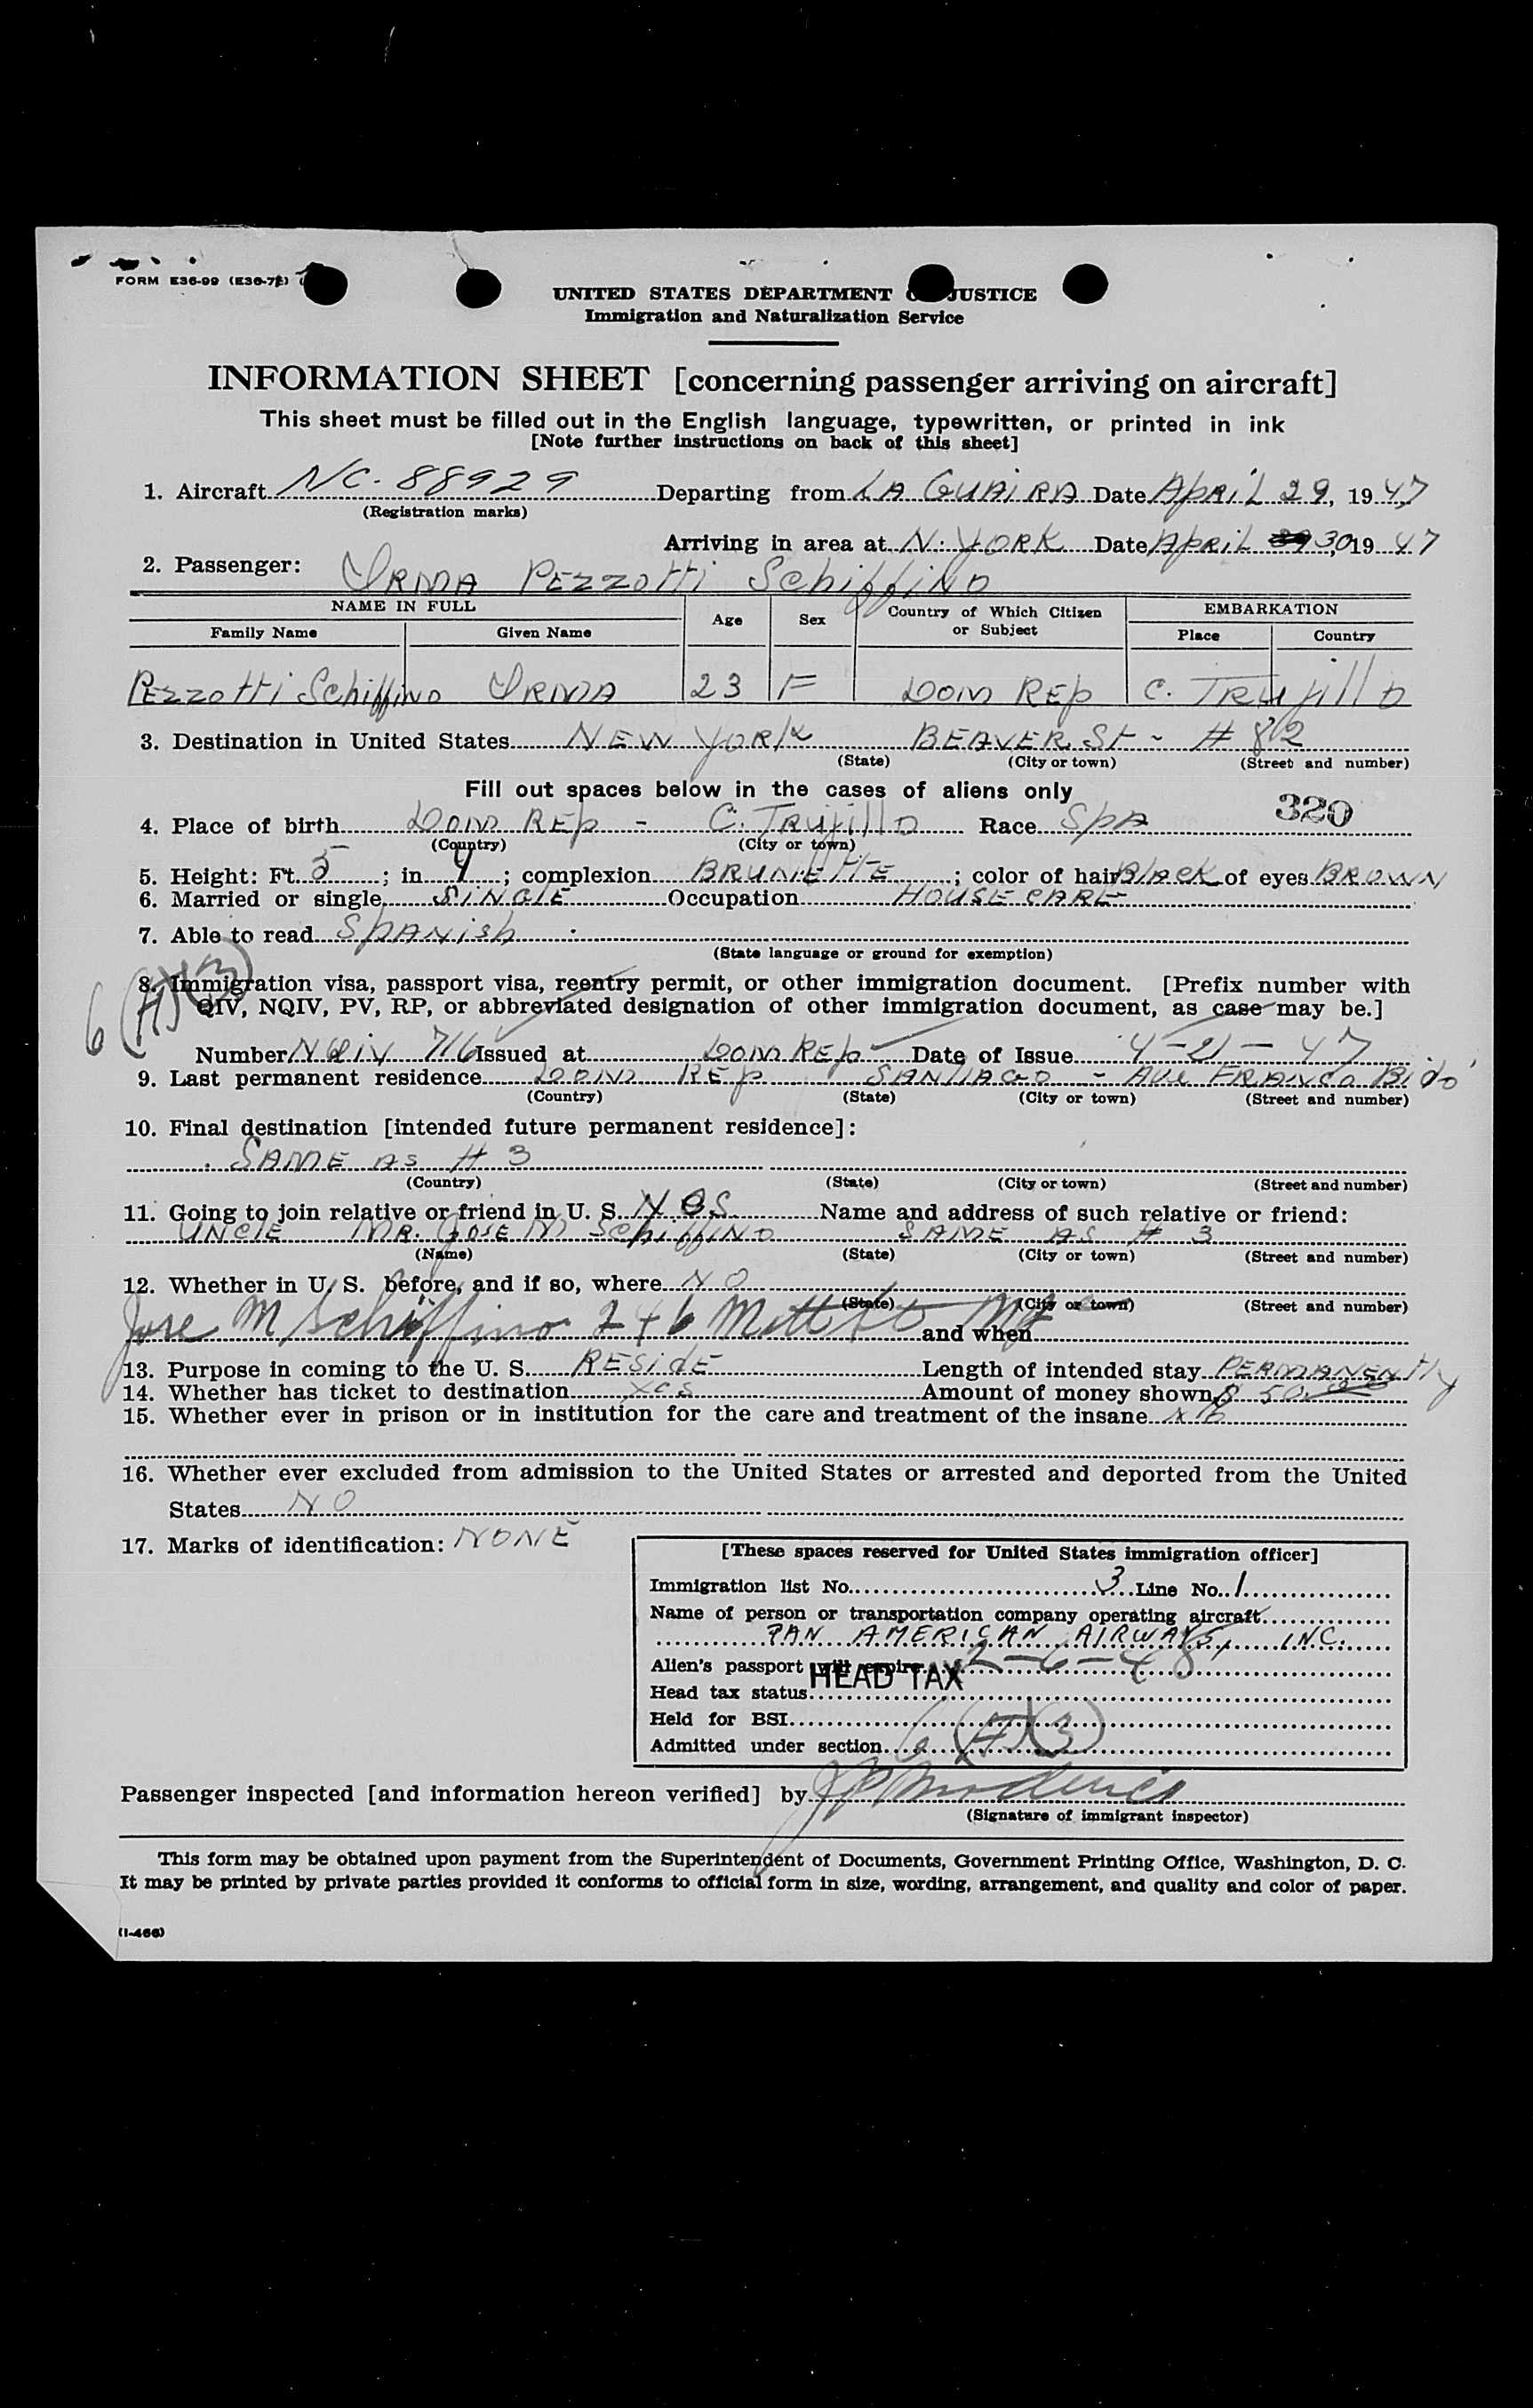 FORM E36-99 (E36-7
UNITED STATES DEPARTMENT JUSTICE
Immigration and Naturalization Service
INFORMATION SHEET [concerning passenger arriving on aircraft]
This sheet must be filled out in the English language, typewritten, or printed in ink
[Note further instructions on back of this sheet]
1. Aircraft NC-88929 Departing from LA GUAIRA Date April 29, 1947
(Registration marks)
Arriving in area at N. YORK Date April 30, 1947
2. Passenger: IRMA PEZZOTTI Schiffino
NAME IN FULL Age Sex Country of Which Citizen or Subject EMBARKATION
Family Name Given Name Place Country
PEZZOTTI Schiffino IRMA 23 F DOM REP C. TRUJILLO
3. Destination in United States NEW YORK BEAVER St - # 82
(State) (City or town) (Street and number)
Fill out spaces below in the cases of aliens only
320
4. Place of birth DOM REP - C. TRUJILLO Race SPA
(Country) (City or town)
5. Height: Ft. 5; in 4; complexion BRUNETTE; color of hair Black of eyes BROWN
6. Married or single SINGLE Occupation HOUSE CARE
7. Able to read SPANish
(State language or ground for exemption)
8. Immigration visa, passport visa, reentry permit, or other immigration document. [Prefix number with
QIV, NQIV, PV, RP, or abbreviated designation of other immigration document, as case may be.]
6(A)(3)
Number NQIV 716 Issued at DOM REP Date of Issue 4-21-47
9. Last permanent residence DOM REP SANTIAGO - Ave FRANCO Bido
(Country) (State) (City or town) (Street and number)
10. Final destination [intended future permanent residence]:
SAME AS # 3
(Country) (State) (City or town) (Street and number)
11. Going to join relative or friend in U. S. YES Name and address of such relative or friend:
UNCLE MR. JOSE M Schiffino SAME AS # 3
(Name) (State) (City or town) (Street and number)
12. Whether in U. S. before, and if so, where NO
(State) (City or town) (Street and number)
Jose M Schiffino 246 Mott St NY and when
13. Purpose in coming to the U. S. RESIDE Length of intended stay PERMANENTly
14. Whether has ticket to destination YES Amount of money shown $ 50.00
15. Whether ever in prison or in institution for the care and treatment of the insane NO
16. Whether ever excluded from admission to the United States or arrested and deported from the United
States NO
17. Marks of identification: NONE
[These spaces reserved for United States immigration officer]
Immigration list No. 3 Line No. 1
Name of person or transportation company operating aircraft
PAN AMERICAN AIRWAYS, INC.
Alien's passport will expire 2-6-48
Head tax status HEAD TAX
Held for BSI
Admitted under section 6(A)(3)
Passenger inspected [and information hereon verified] by
(Signature of immigrant inspector)
This form may be obtained upon payment from the Superintendent of Documents, Government Printing Office, Washington, D. C.
It may be printed by private parties provided it conforms to official form in size, wording, arrangement, and quality and color of paper.
(I-466)